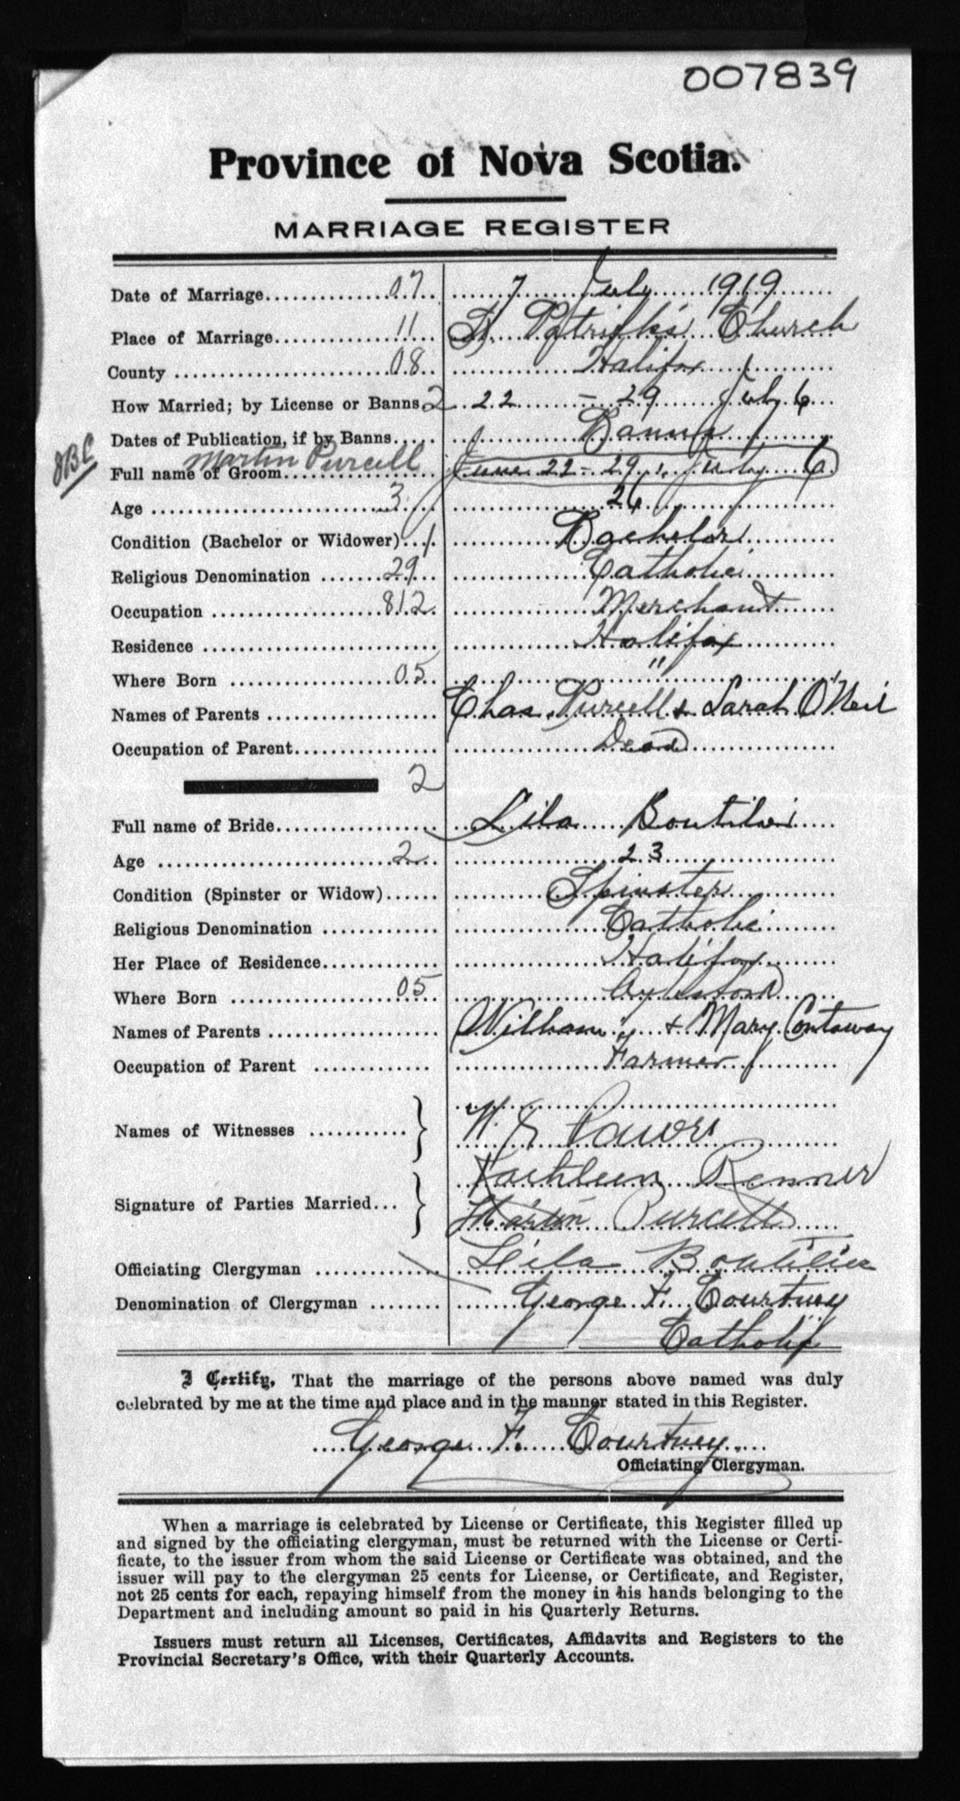 007839
Province of Nova Scotia.
MARRIAGE REGISTER
Date of Marriage 07 7 July 1919
Place of Marriage 11 St. Patrick's Church
County 08 Halifax
How Married; by License or Banns 2 22 - 29 July 6
Dates of Publication, if by Banns Banns
JBC Martin Purcell
Full name of Groom June 22 - 29, July 6
Age 3 26
Condition (Bachelor or Widower) 1 Bachelor
Religious Denomination 29 Catholic
Occupation 812 Merchant
Residence Halifax
Where Born 05 "
Names of Parents Chas. Purcell & Sarah O'Neil
Occupation of Parent Dead
2
Full name of Bride Lila Boutilier
Age 2 23
Condition (Spinster or Widow) Spinster
Religious Denomination Catholic
Her Place of Residence Halifax
Where Born 05 Aylesford
Names of Parents William " & Mary Contaway
Occupation of Parent Farmer
Names of Witnesses W. Power
Kathleen Renner
Signature of Parties Married Martin Purcell
Leila Boutilier
Officiating Clergyman
Denomination of Clergyman George F. Courtney
Catholic
I Certify, That the marriage of the persons above named was duly
celebrated by me at the time and place and in the manner stated in this Register.
George F. Courtney
Officiating Clergyman.
When a marriage is celebrated by License or Certificate, this Register filled up
and signed by the officiating clergyman, must be returned with the License or Certi-
ficate, to the issuer from whom the said License or Certificate was obtained, and the
issuer will pay to the clergyman 25 cents for License, or Certificate, and Register,
not 25 cents for each, repaying himself from the money in his hands belonging to the
Department and including amount so paid in his Quarterly Returns.
Issuers must return all Licenses, Certificates, Affidavits and Registers to the
Provincial Secretary's Office, with their Quarterly Accounts.